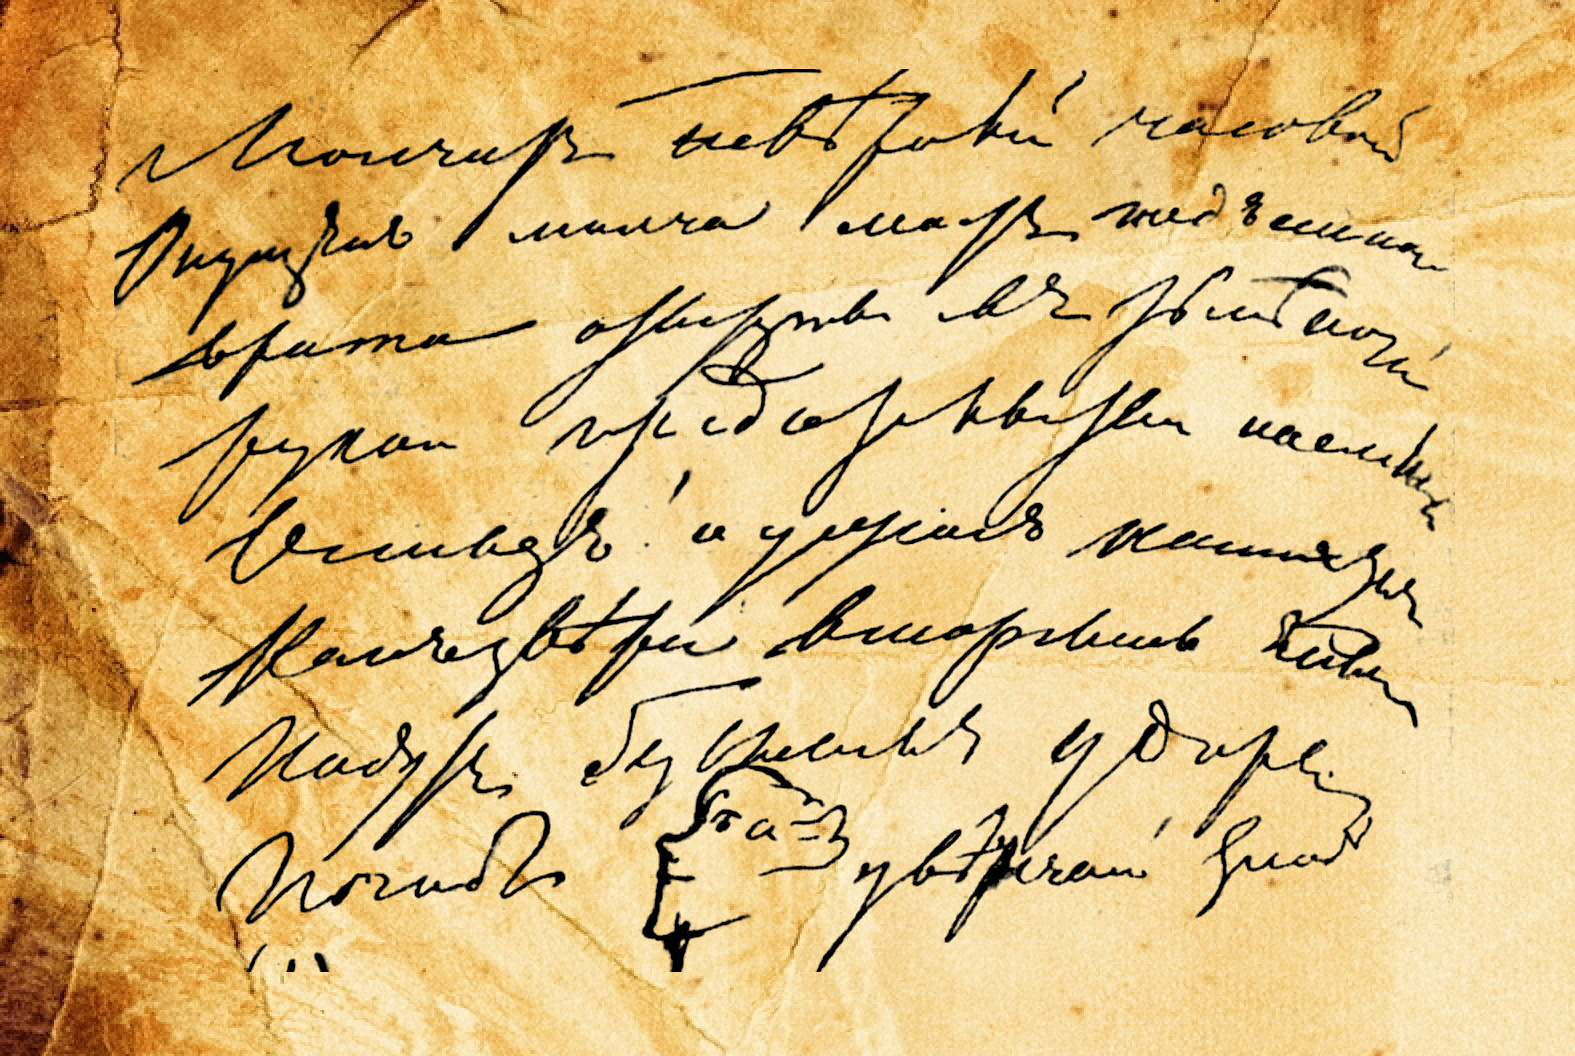 Молчитъ невѣрный часовой
Опущенъ молча мостъ подъемный
врата отверсты въ тьмѣ ночной
рукой предательства наемной
О стыдъ! о ужасъ нашихъ дней
Какъ звѣри вторглись
Падутъ безславные удары
Погибъ увѣнчанный злодѣй